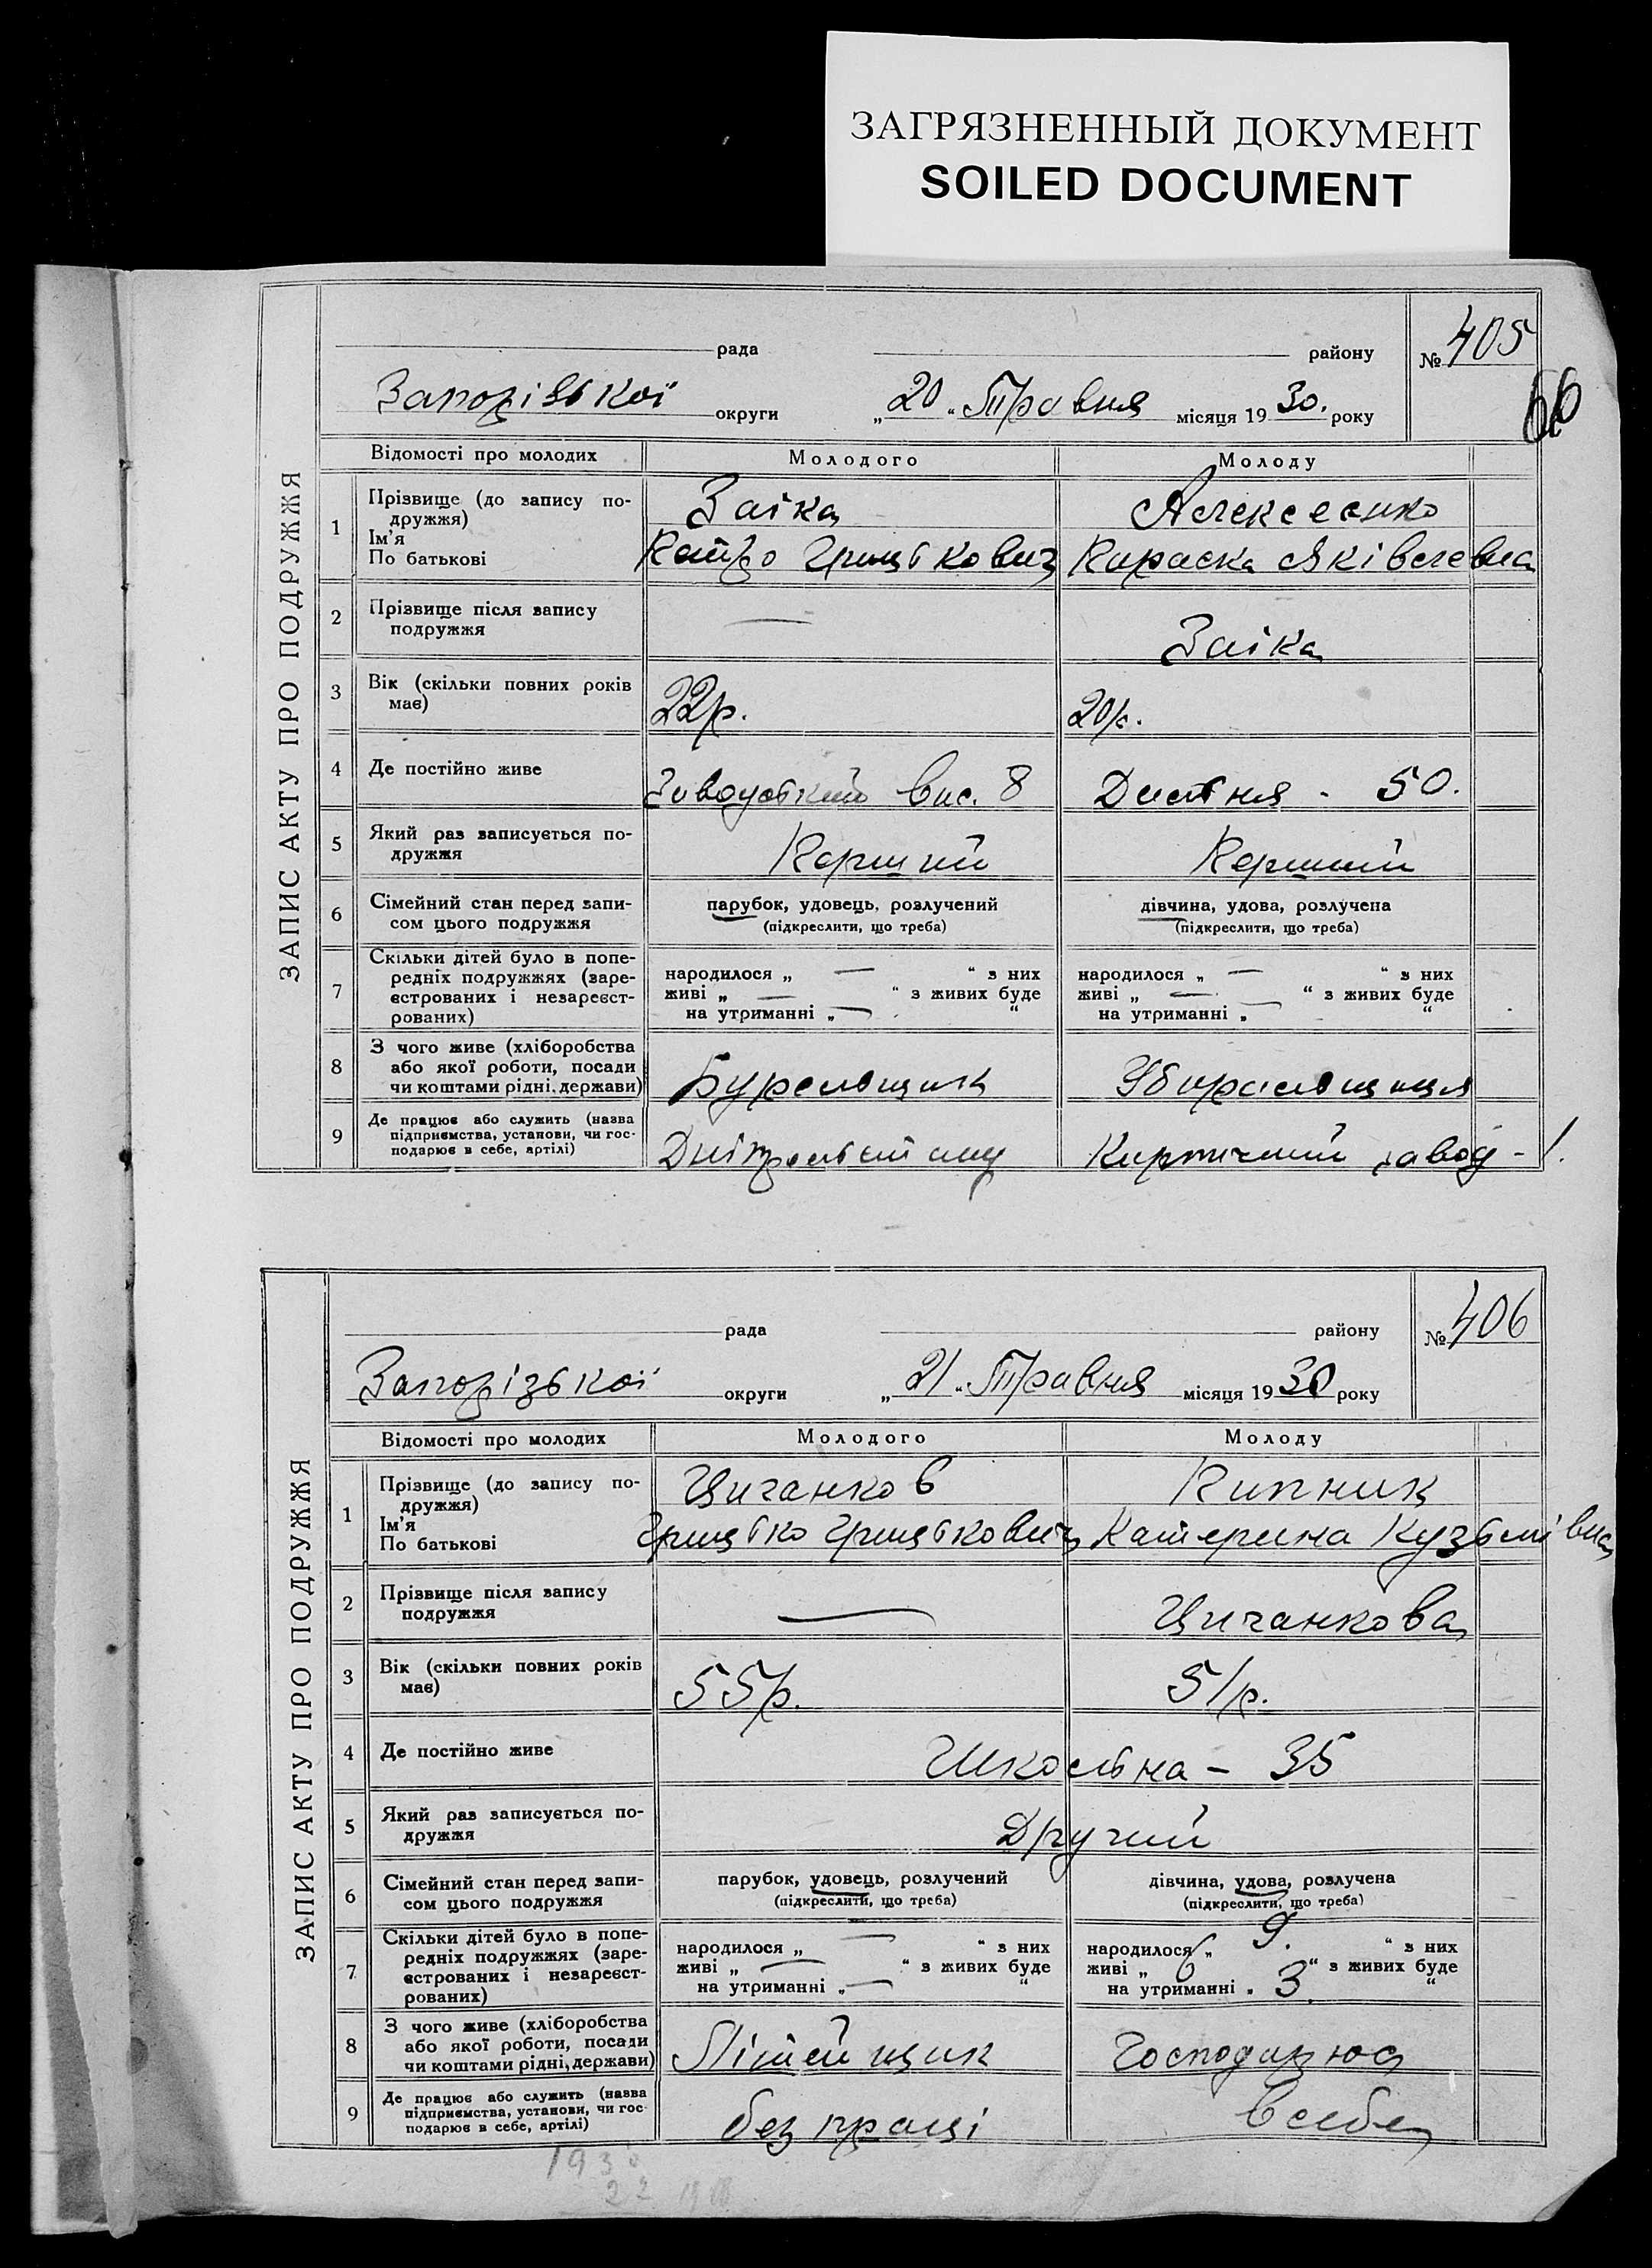 ЗАГРЯЗНЕННЫЙ ДОКУМЕНТ
SOILED DOCUMENT
ЗАПИС АКТУ ПРО ПОДРУЖЖЯ
рада району № 405
Запорізької округи „20“ Травня місяця 1930. року
66
Відомості про молодих Молодого Молоду
1 Прізвище (до запису по- Заіка Алексеенко
дружжя)
Ім'я
По батькові Грицькович Параска Яківлевна
2 Прізвище після запису — Заіка
подружжя
3 Вік (скільки повних років 22р. 20р.
має)
4 Де постійно живе Заводський вис. 8 - 50.
5 Який раз записується по- Перший Перший
дружжя
6 Сімейний стан перед запи- парубок, удовець, розлучений дівчина, удова, розлучена
сом цього подружжя (підкреслити, що треба) (підкреслити, що треба)
7 Скільки дітей було в попе-
редніх подружжях (заре- народилося „ — “ з них народилося „ — “ з них
єстрованих і незареєст- живі „ — “ з живих буде живі „ — “ з живих буде
рованих) на утриманні „ — “ на утриманні „ — “
8 З чого живе (хліборобства
або якої роботи, посади Бурельщик Убиральщиця
чи коштами рідні, держави)
9 Де працює або служить (назва
підприємства, установи, чи гос- Дніпрельстану Кирпичний завод - 1.
подарює в себе, артілі)
ЗАПИС АКТУ ПРО ПОДРУЖЖЯ
рада району № 406
Запорізької округи „21“ Травня місяця 1930 року
Відомості про молодих Молодого Молоду
1 Прізвище (до запису по- Циганков Кипник
дружжя)
Ім'я
По батькові Грицько Грицькович Катерина Кузьмівна
2 Прізвище після запису — Циганкова
подружжя
3 Вік (скільки повних років 55р. 51р.
має)
4 Де постійно живе Школьна - 35
5 Який раз записується по- Другий
дружжя
6 Сімейний стан перед запи- парубок, удовець, розлучений дівчина, удова, розлучена
сом цього подружжя (підкреслити, що треба) (підкреслити, що треба)
7 Скільки дітей було в попе-
редніх подружжях (заре- народилося „ — “ з них народилося „ 9. “ з них
єстрованих і незареєст- живі „ — “ з живих буде живі „ 6 “ з живих буде
рованих) на утриманні „ — “ на утриманні „ 3 “
8 З чого живе (хліборобства
або якої роботи, посади Літейщик Господарює
чи коштами рідні, держави)
9 Де працює або служить (назва
підприємства, установи, чи гос- без праці в себе
подарює в себе, артілі)